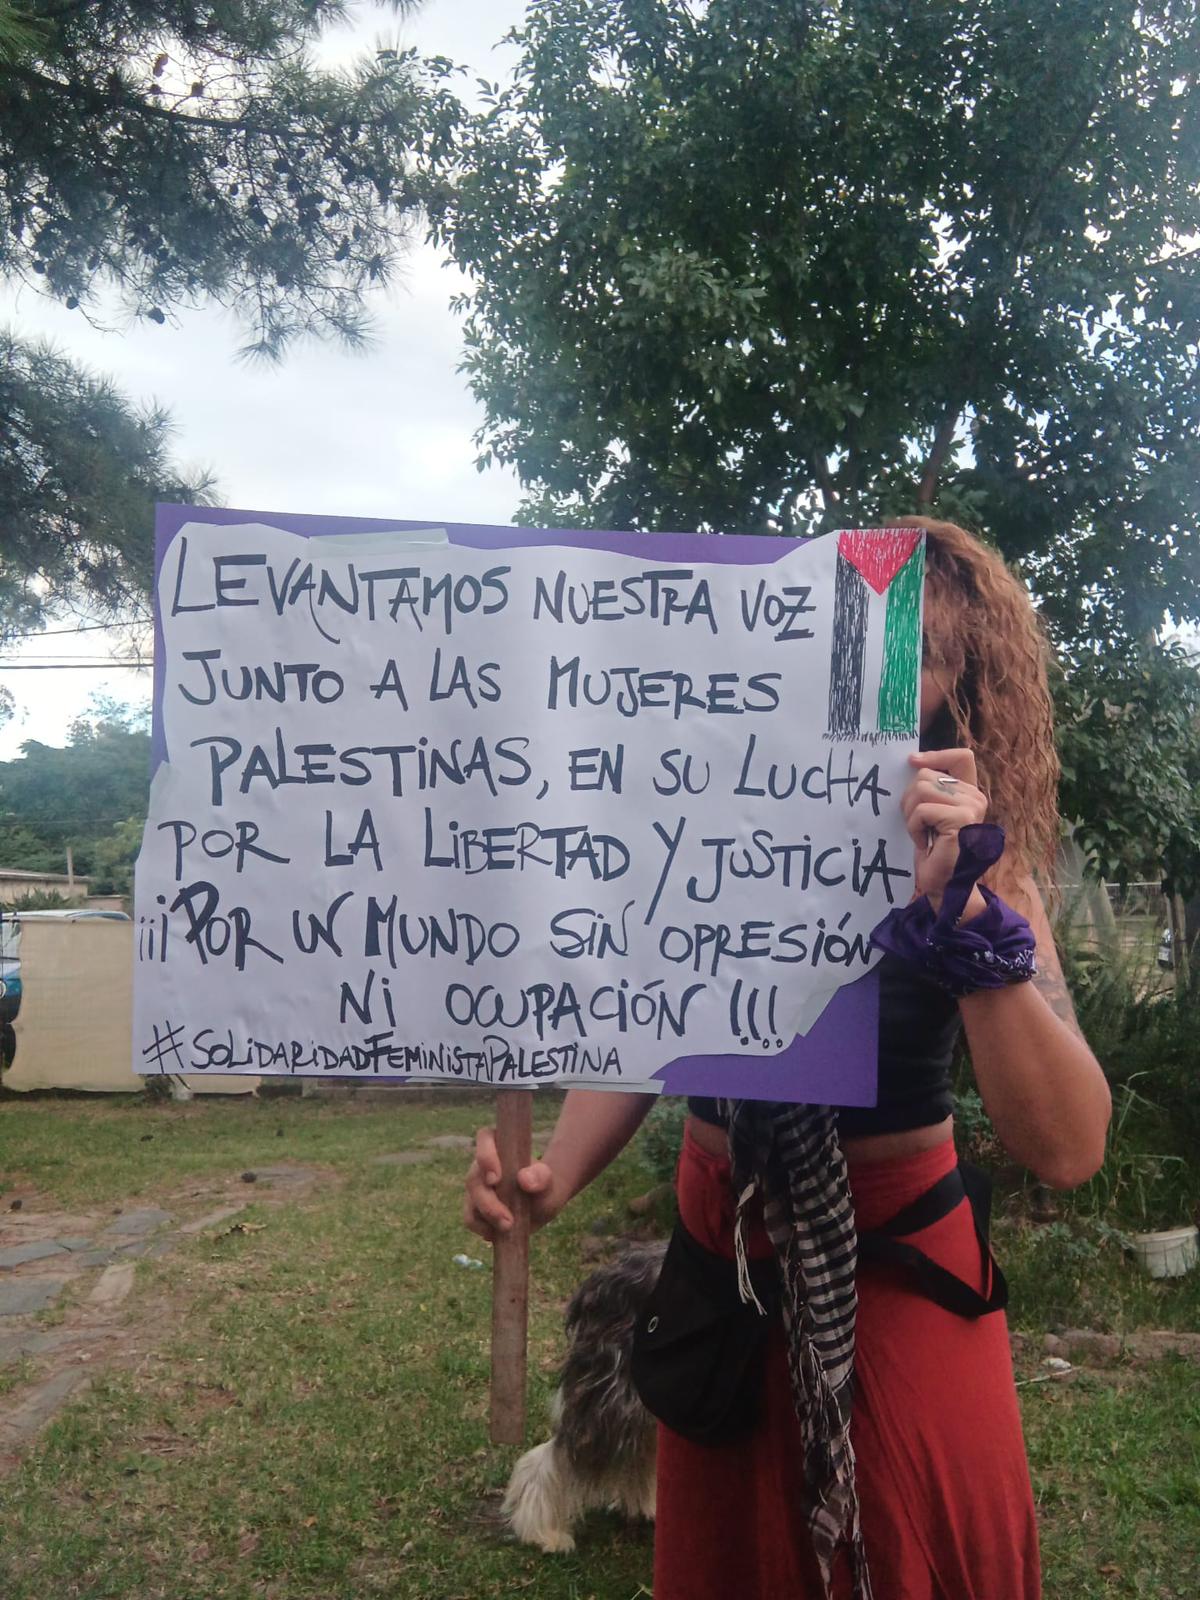 LEVANTAMOS NUESTRA VOZ
JUNTO A LAS MUJERES
PALESTINAS, EN SU LUCHA
POR LA LIBERTAD Y JUSTICIA
¡¡¡POR UN MUNDO SIN OPRESIÓN
NI OCUPACIÓN !!!
#SOLIDARIDADFEMINISTAPALESTINA